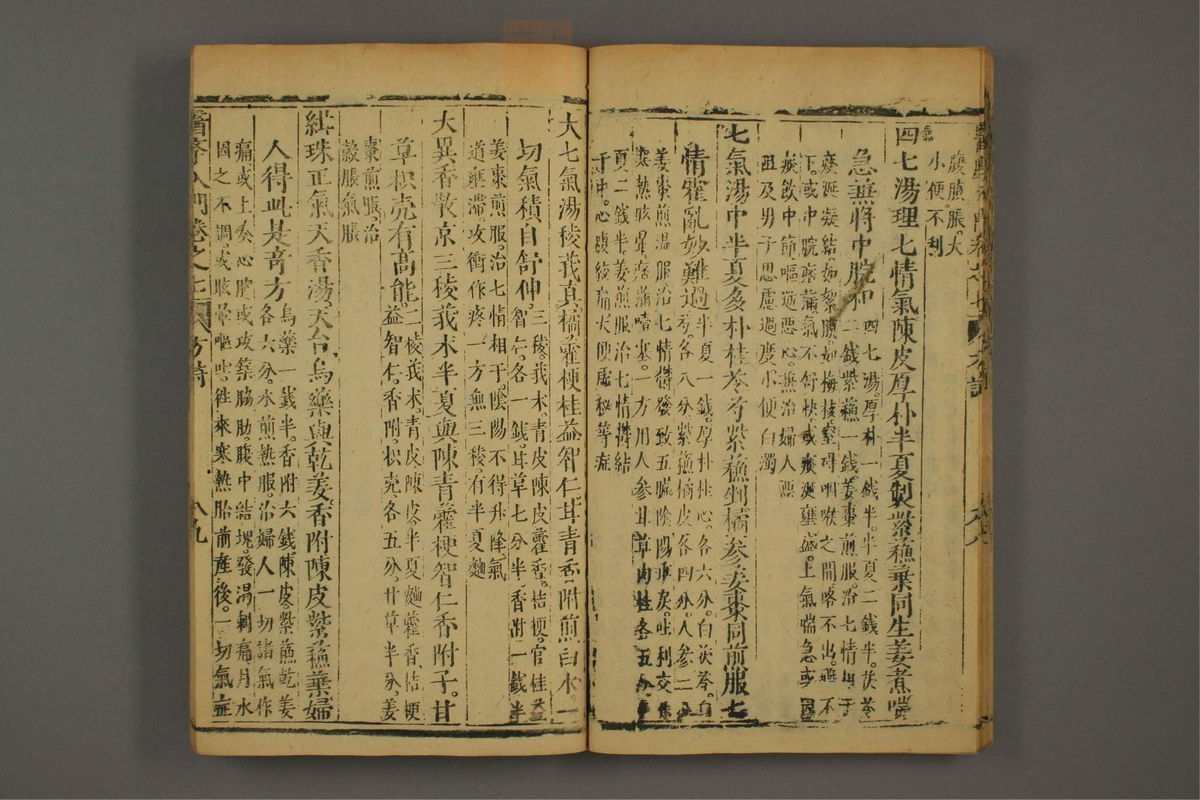 腹脹脹大
小便不利
四七湯理七情氣陳皮厚朴半夏制紫蘓棗同生姜煮嗂
急兼將中脘和
四七湯厚朴一錢半。半夏二錢半。茯苓
二錢紫蘓一錢姜棗煎服。治七情
痰涎凝結。如絮膜。如梅核。窒碍咽喉之間。咯不出。嚥不
下。或中脘痞滿氣不舒快。或痰涎壅盛。上氣喘急。或因
痰飲中節嘔逆惡心。兼治婦人惡
阻及男子思慮過度小便白濁
七氣湯中半夏多朴桂苓芍紫蘓和橘參姜棗同前服七
情霍亂妙難過
半夏一錢。厚朴桂心。各六分。白茯苓。白
芍。各八分紫蘓橘皮各四分。人參二分
姜棗煎溫服治七情欝發致五臟陰陽乖戾。吐利交作
寒熱眩暈痞滿噎塞。一方用人參甘草肉桂各五分半
夏二錢半姜煎服治七情欝結
于中。心腹絞痛大便虛秘等症
大七氣湯稜莪真橘藿梗桂益智仁甘青香附煎白水一
切氣積自舒伸
三稜。莪朮。青皮陳皮藿香。桔梗。官桂益
智仁。各一錢。甘草七分半香附一錢半
姜棗煎服。治七情相干。陰陽不得升降。氣
道壅滯。攻衝作疼。一方無三稜。有半夏麯
大異香散京三稜莪朮半夏與陳青藿梗智仁香附子。甘
草枳壳有髙能。
二稜莪朮。青皮陳皮半夏麯藿香。桔梗
益智仁。香附。枳壳。各五分。甘草半分。姜
棗煎服治
穀脹氣脹
紝珠正氣天香湯。天台烏藥與乾姜。香附陳皮紫蘓葉婦
人得此是竒方
烏藥一錢半。香附六錢陳皮紫蘓乾姜
各六分。水煎熱服。治婦人一切諸氣作
痛或上奏心胷。或攻築脇肋。腹中結塊。發渴刺痛月水
因之不調。或眩暈嘔吐。徃來寒熱胎前産後。一切氣症
醫學入門卷之七 方詩 八九